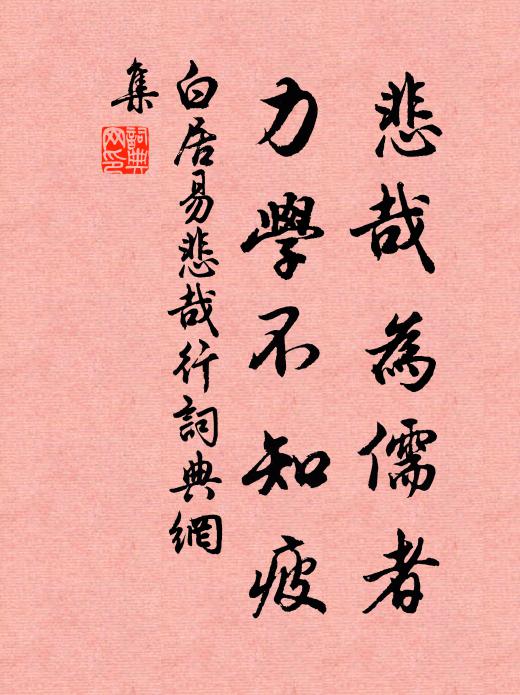 悲哉為儒者
力學不知疲
白居易悲哉行詞典網
集
詞典網印